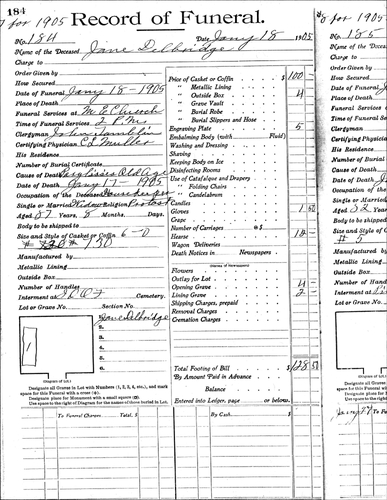 184
7 for 1905 Record of Funeral.
No. 184 Date Jany 18 1905
Name of the Deceased Jane Delbridge
Charge to
Order Given by
How Secured
Date of Funeral Jany 18 - 1905
Place of Death
Funeral Services at M E Church
Time of Funeral Services 2 P.M.
Clergyman John
Certifying Physician C L Muller
His Residence
Number of Burial Certificate
Cause of Death Old Age
Date of Death Jany 17 - 1905
Occupation of the Deceased Housekeeper
Single or Married Widow Religion Protest
Aged 87 Years 8 Months Days.
Body to be shipped to
Size and Style of Casket or Coffin 6-0
130
Manufactured by
Metallic Lining
Outside Box
Number of Handles
Interment at I O O F Cemetery.
Lot or Grave No. Section No.
1
Jane Delbridge
2.
3.
4.
5.
6.
(Diagram of Lot)
Designate all Graves in Lot with Numbers (1, 2, 3, 4, etc.), and mark
space for this Funeral with a cross (+).
Designate place for Monument with a small square (□).
Use space to the right of Diagram for the names of those buried in Lot.
Price of Casket or Coffin $ 100 -
" Metallic Lining
" Outside Box 4
" Grave Vault
" Burial Robe
" Burial Slippers and Hose
Engraving Plate 5
Embalming Body (with Fluid)
Washing and Dressing
Shaving
Keeping Body on Ice
Disinfecting Rooms
Use of Catafalque and Drapery
" Folding Chairs
" Candelabrum
Candles
Gloves 1 50
Crape
Number of Carriages @ $
Hearse 12 -
Wagon Deliveries
Death Notices in Newspapers
(Names of Newspapers)
Flowers
Outlay for Lot
Opening Grave 4 -
Lining Grave 2
Shipping Charges, prepaid
Removal Charges
Cremation Charges
Total Footing of Bill $ 128 50
By Amount Paid in Advance
Balance
Entered into Ledger, page or below.
To Funeral Charges Total, $ By Cash $
8 for 1905
No. 185
Name of the Deceased
Charge to
Order Given by
How Secured
Date of Funeral
Place of Death
Funeral Services
Time of Funeral
Clergyman
Certifying Physician
His Residence
Number of Burial
Cause of Death
Date of Death
Occupation of the
Single or Married
Aged 32 Years
Body to be shipped
Size and Style of
# 5
Manufactured by
Metallic Lining
Outside Box
Number of Handles
Interment at
Lot or Grave No.
(Diagram of Lot)
Designate all
space for this
Designate
Use space
To Funeral